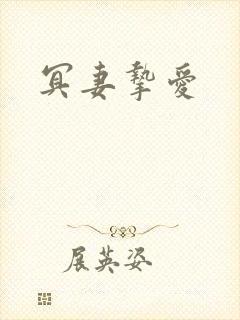 冥妻摯愛
展英姿